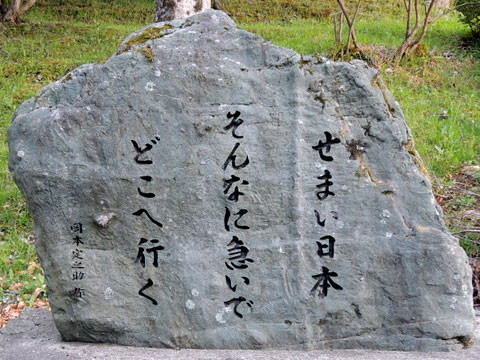 せまい日本
そんなに急いで
どこへ行く
岡本定之助